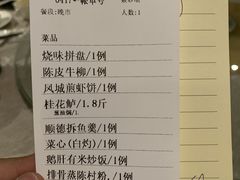 餐段:晚市
人数:1
菜品
烧味拼盘/1例
陈皮牛柳/1例
凤城煎虾饼/1例
桂花鲈/1.8斤
葱油焗/1
顺德拆鱼羹/1例
菜心(白灼)/1例
鹅肝有米炒饭/1例
排骨蒸陈村粉,/1例